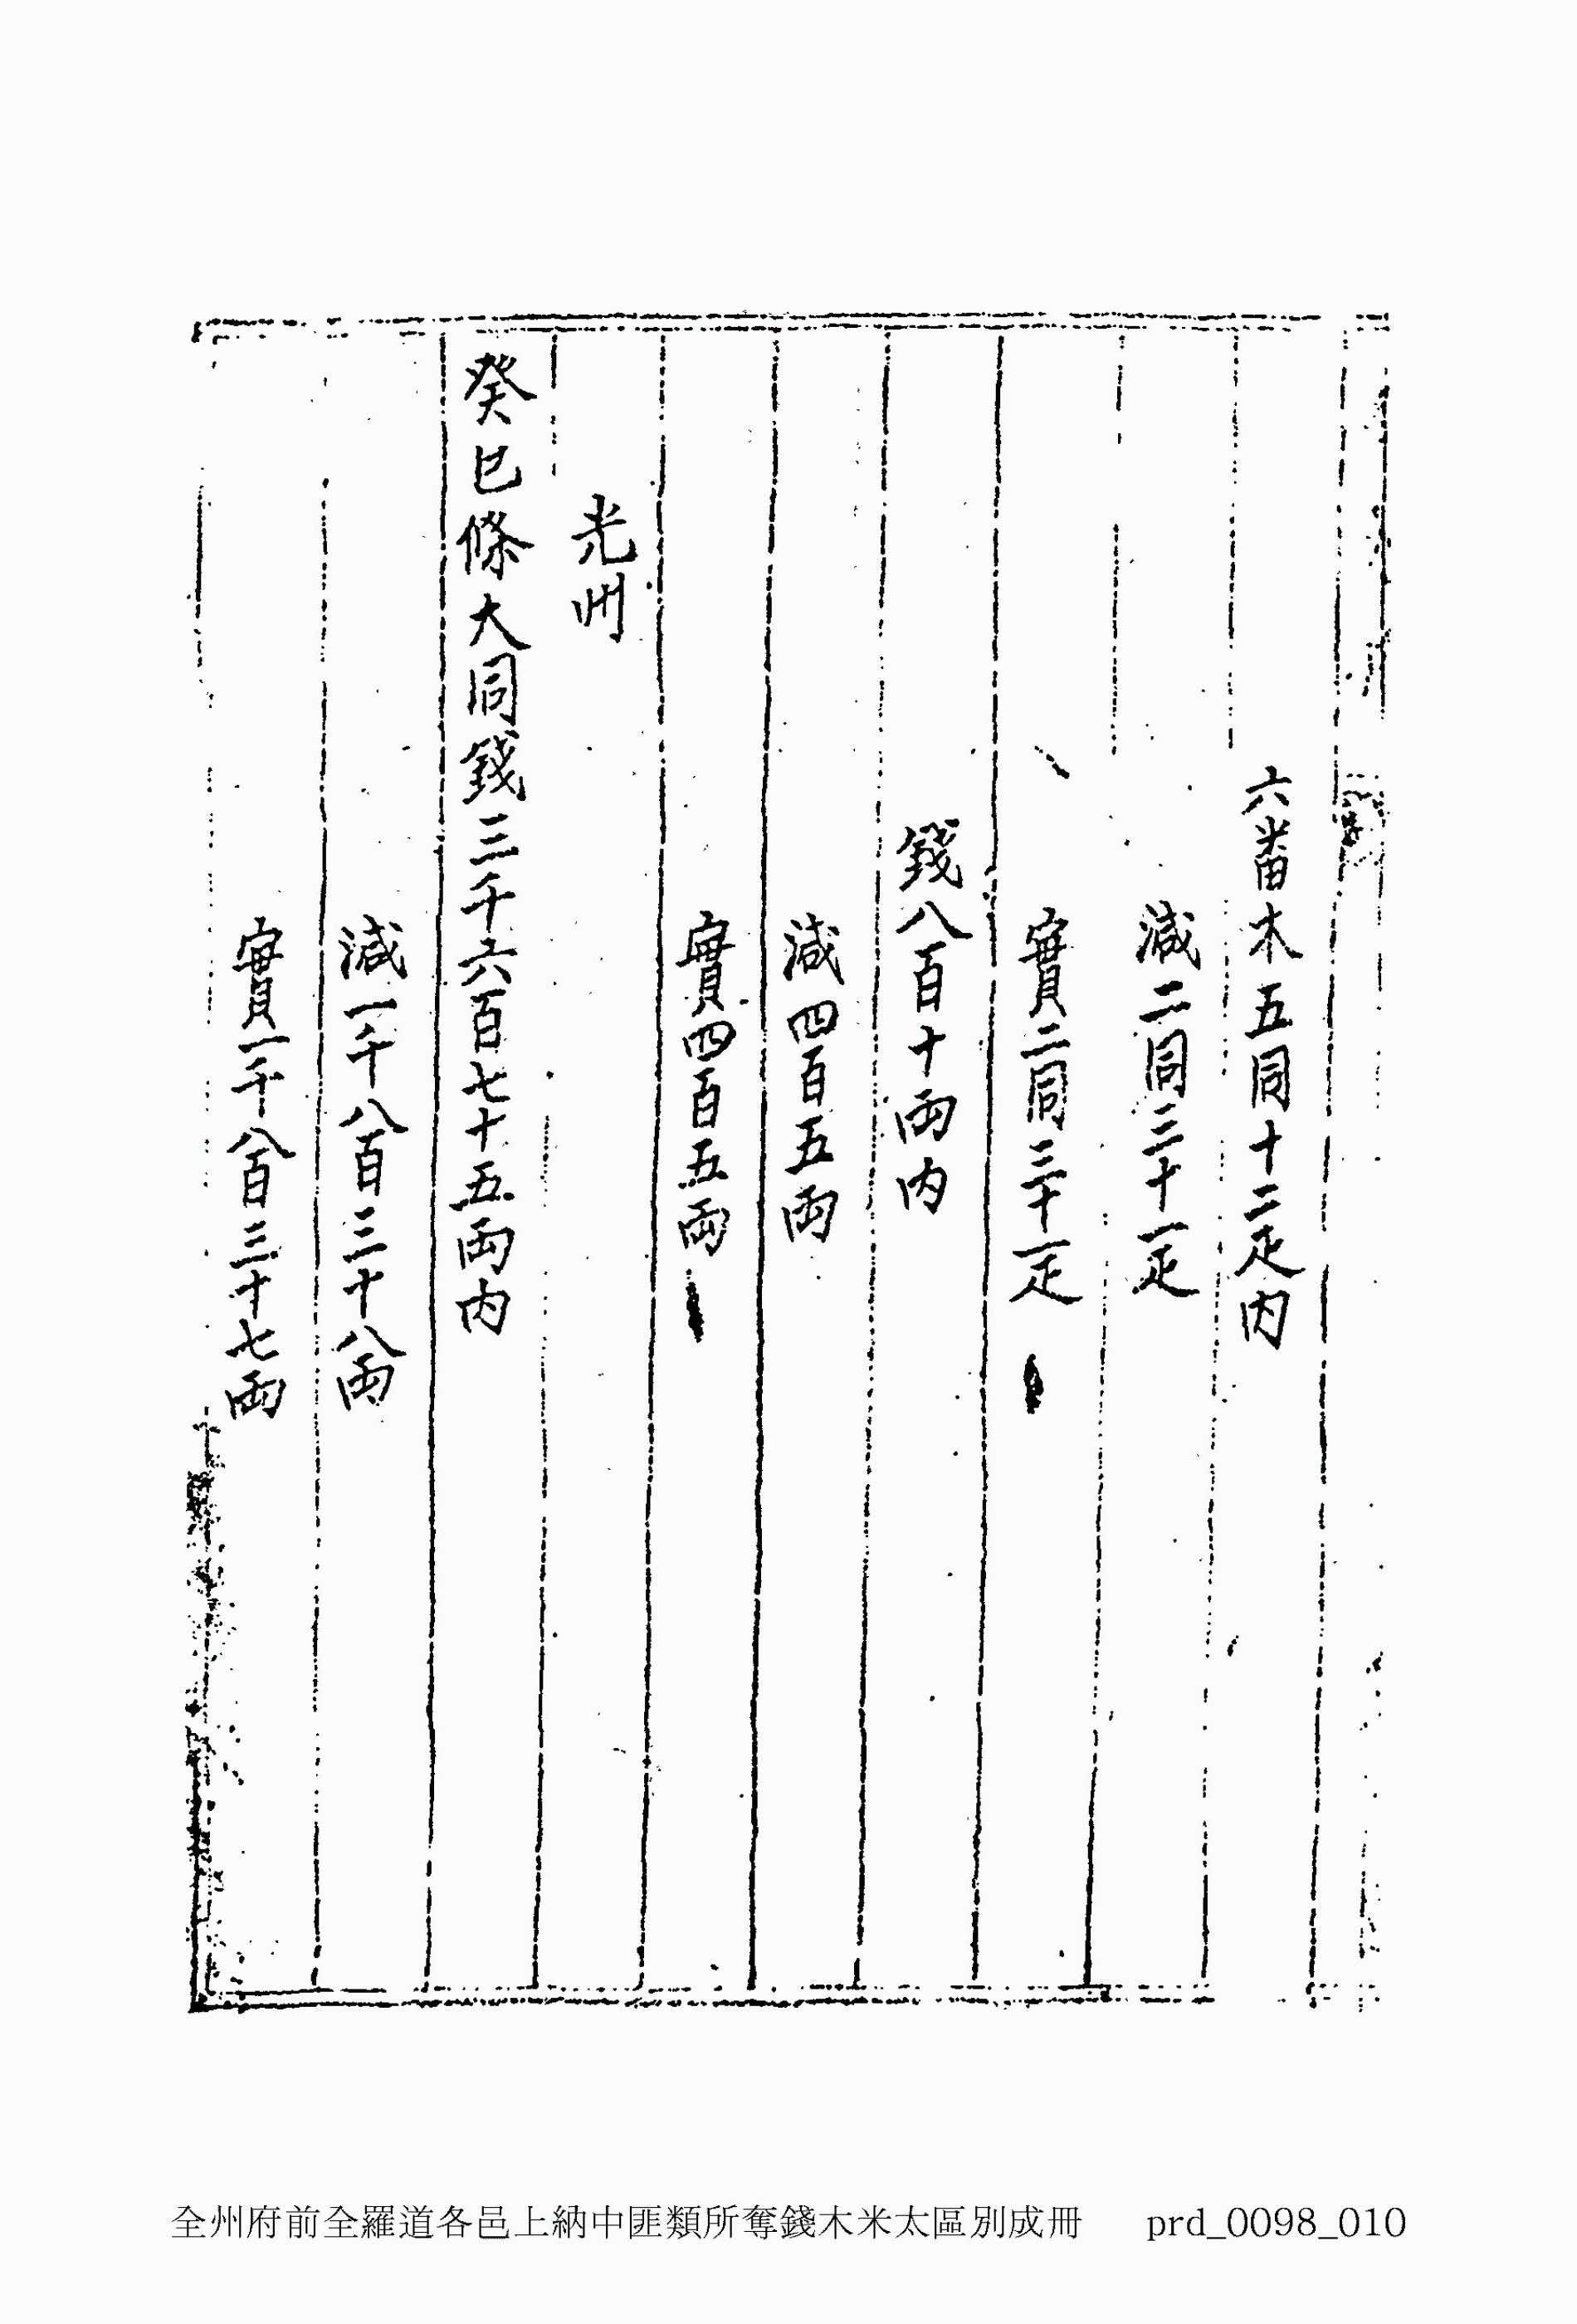 六番木五同十二疋内
減二同三十一疋
實二同三十一疋
錢八百十兩内
減四百五兩
實四百五兩
光州
癸巳條大同錢三千六百七十五兩内
減一千八百三十八兩
實一千八百三十七兩
全州府前全羅道各邑上納中匪類所奪錢木米太區別成冊 prd_0098_010